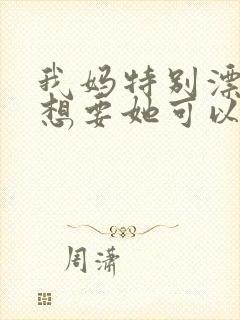 我妈特别漂
想要她可以
周潇